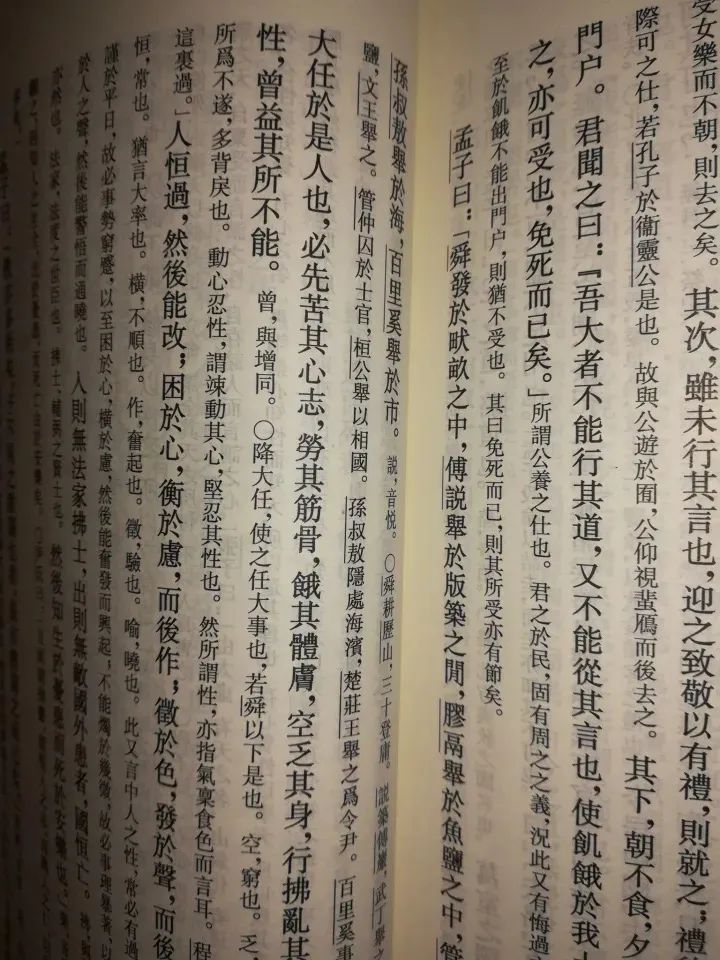 受女樂而不朝，則去之矣。其次，雖未行其言也，迎之致敬以有禮，則就之；禮
際可之仕，若孔子於衞靈公是也。故與公遊於囿，公仰視蜚鴈而後去之。其下，朝不食，夕
門户。君聞之曰：『吾大者不能行其道，又不能從其言也，使飢餓於我土
之，亦可受也，免死而已矣。」所謂公養之仕也。君之於民，固有周之之義，況此又有悔過
至於飢餓不能出門户，則猶不受也。其曰免死而已，則其所受亦有節矣。
孟子曰：「舜發於畎畝之中，傅説舉於版築之閒，膠鬲舉於魚鹽之中，管
孫叔敖舉於海，百里奚舉於市。説，音悦。〇舜耕歷山，三十登庸。説築傅巖，武丁舉之
鹽，文王舉之。管仲囚於士官，桓公舉以相國。孫叔敖隱處海濱，楚莊王舉之爲令尹。百里奚事
大任於是人也，必先苦其心志，勞其筋骨，餓其體膚，空乏其身，行拂亂其
性，曾益其所不能。曾，與增同。〇降大任，使之任大事也，若舜以下是也。空，窮也。乏，
所爲不遂，多背戾也。動心忍性，謂竦動其心，堅忍其性也。然所謂性，亦指氣稟食色而言耳。程
這裏過。」人恒過，然後能改；困於心，衡於慮，而後作；徵於色，發於聲，而後
恒，常也。猶言大率也。橫，不順也。作，奮起也。徵，驗也。喻，曉也。此又言中人之性，常必有過
謹於平日，故必事勢窮蹙，以至困於心，橫於慮，然後能奮發而興起；不能燭於幾微，故必事理暴著，以
於人之聲，然後能警悟而通曉也。入則無法家拂士，出則無敵國外患者，國恒亡。拂，與
亦然也。法家，法度之世臣也。拂士，輔弼之賢士也。然後知生於憂患而死於安樂也。」樂，音